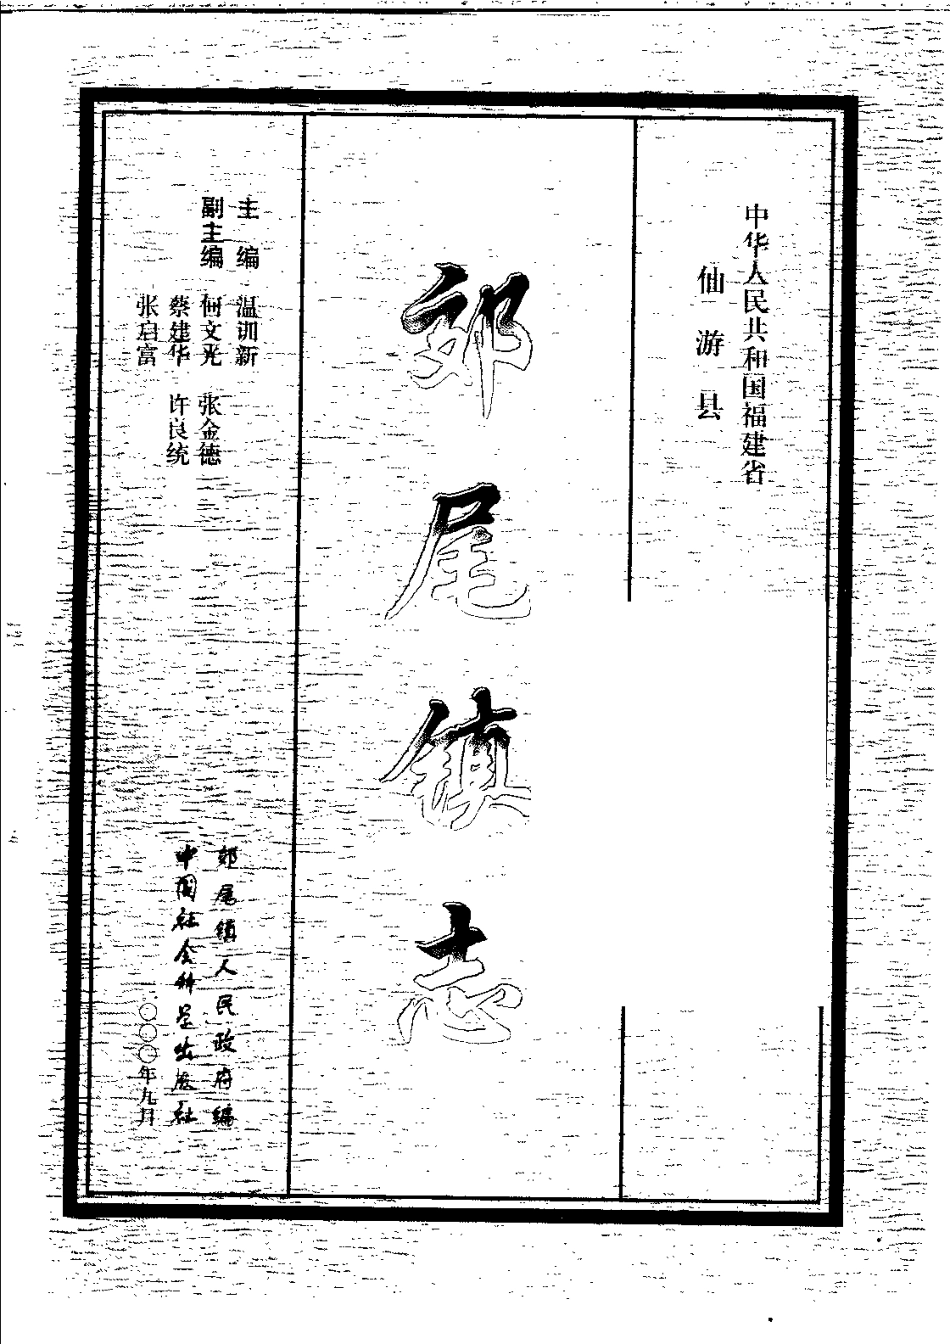 中华人民共和国福建省
仙游县
郊尾镇志
主编 温训新
副主编 何文光 张金德
蔡建华 许良统
张启富
郊尾镇人民政府编
中国社会科学出版社
二〇〇〇年九月